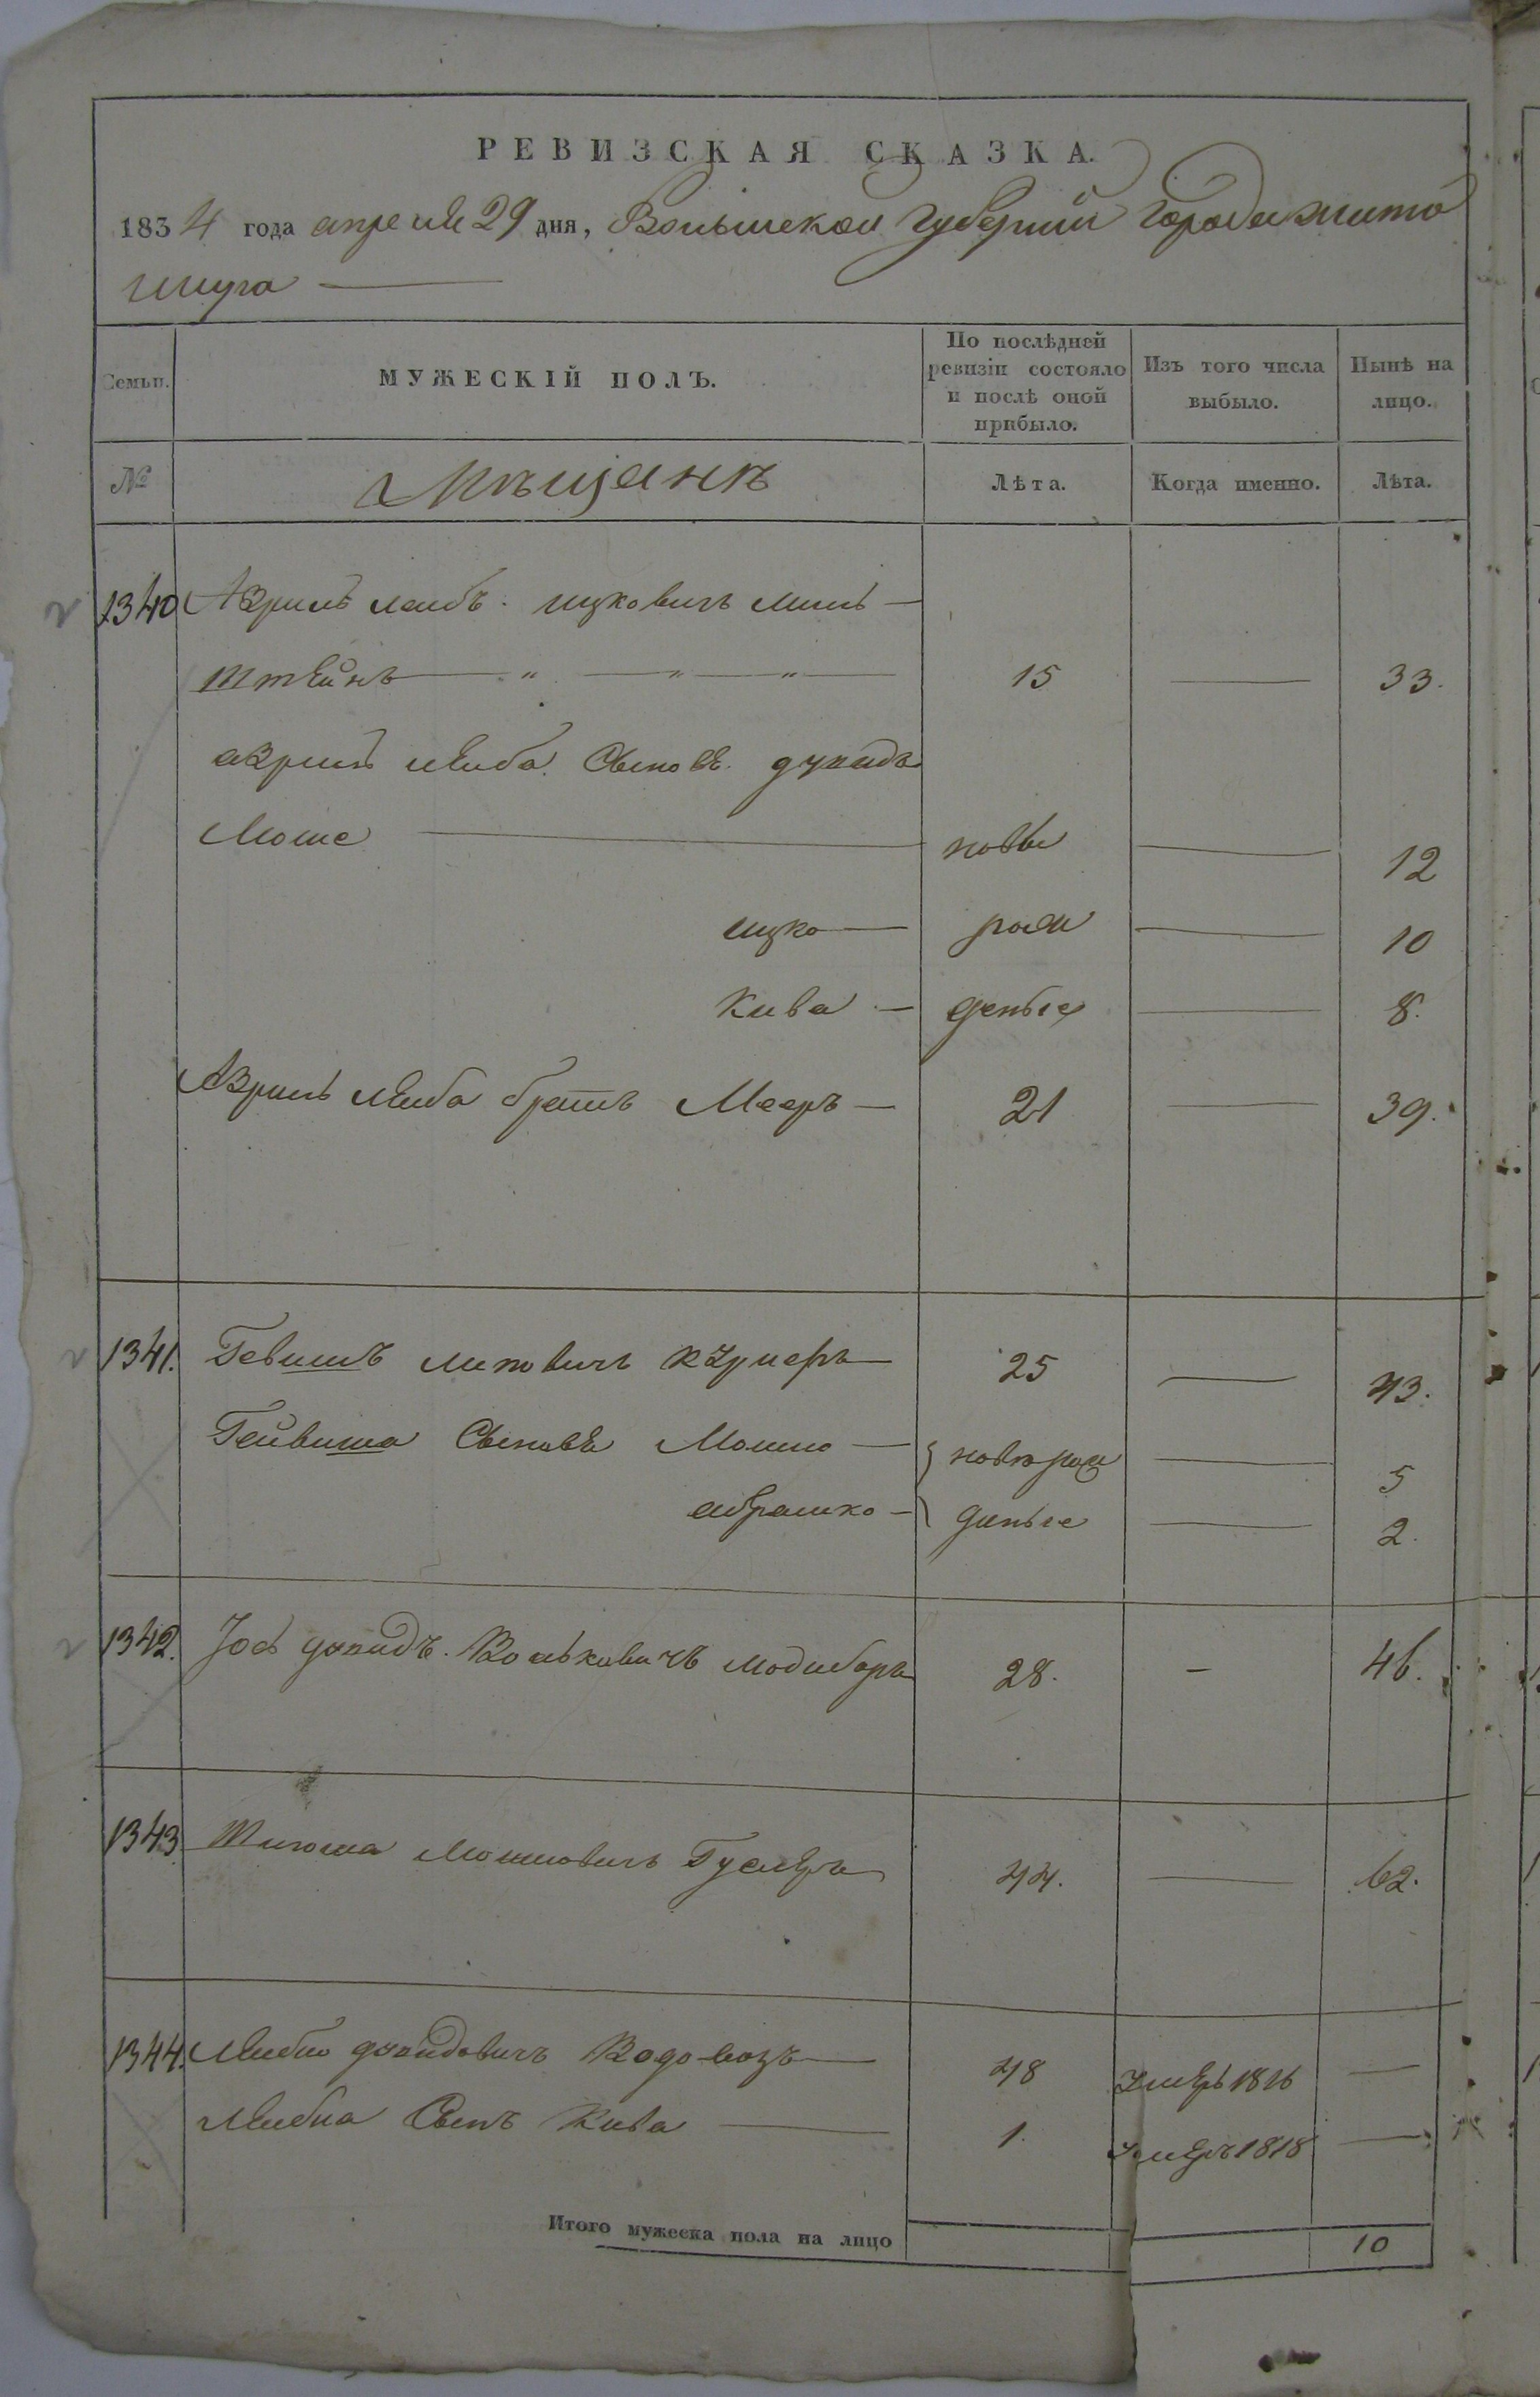 РЕВИЗСКАЯ СКАЗКА.
1834 года апреля 29 дня, Волынской губернии города Жито
мира
Семьи. МУЖЕСКІЙ ПОЛЪ. По послѣдней ревизіи состояло и послѣ оной прибыло. Изъ того числа выбыло. Нынѣ на лицо.
№ Мѣщанъ Лѣта. Когда именно. Лѣта.
1340 Азриль Леибъ Ицковичъ
штейнъ 15 33.
Азриль Лейба Сынове
Моше новы 12
Ицко рож 10
Кива денные 8.
Азриль Лейба братъ Мееръ 21 39.
1341. Гевишъ 25 43.
Гейвиша Сынове Мошко новорож 5
Абрашко денные 2.
1342. Іось Волковичъ 28. 46.
1343 Мошковичъ Гуслеръ 44. 62.
1344. Лейбиш Водовозъ 48 умеръ 1816
Сынъ Кива 1. умеръ 1818
Итого мужеска пола на лицо 10